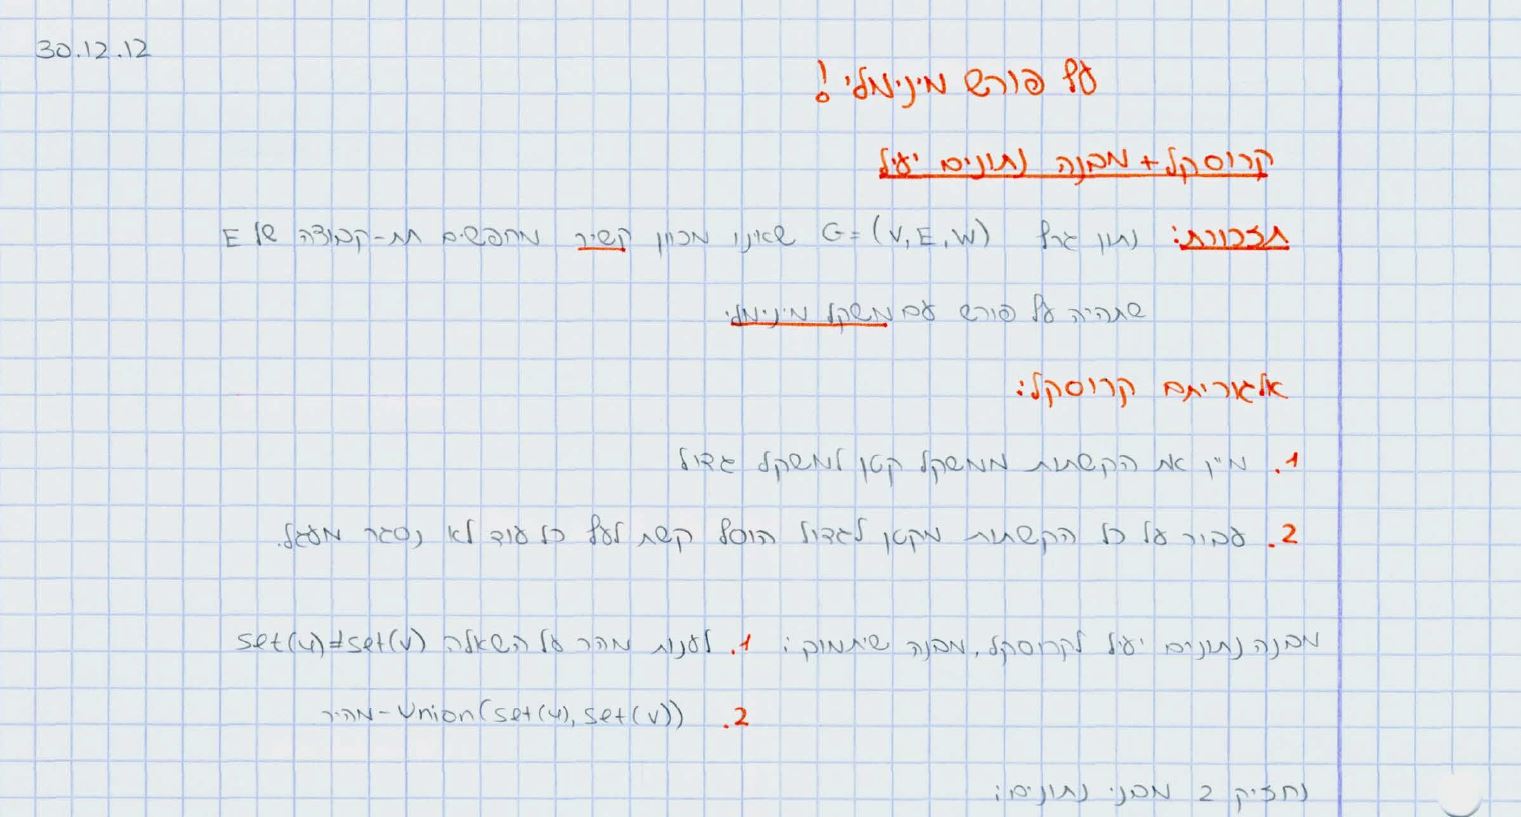 30.12.12
עץ פורש מינימלי!
קרוסקל + מבנה נתונים יעיל
תזכורת: נתון גרף G=(V,E,W) שאינו מכוון קשיר מחפשים תת-קבוצה של E
שתהיה עץ פורש עם משקל מינימלי
אלגוריתם קרוסקל:
1. מיין את הקשתות ממשקל קטן למשקל גדול
2. עבור על כל הקשתות מקטן לגדול הוסף קשת לעץ כל עוד לא נסגר מעגל.
מבנה נתונים יעיל לקרוסקל, מבנה שיתמוך: 1. לענות מהר על השאלה set(u)≠set(v)
2. Union(set(u), set(v)) - מהיר
נחזיק 2 מבני נתונים: